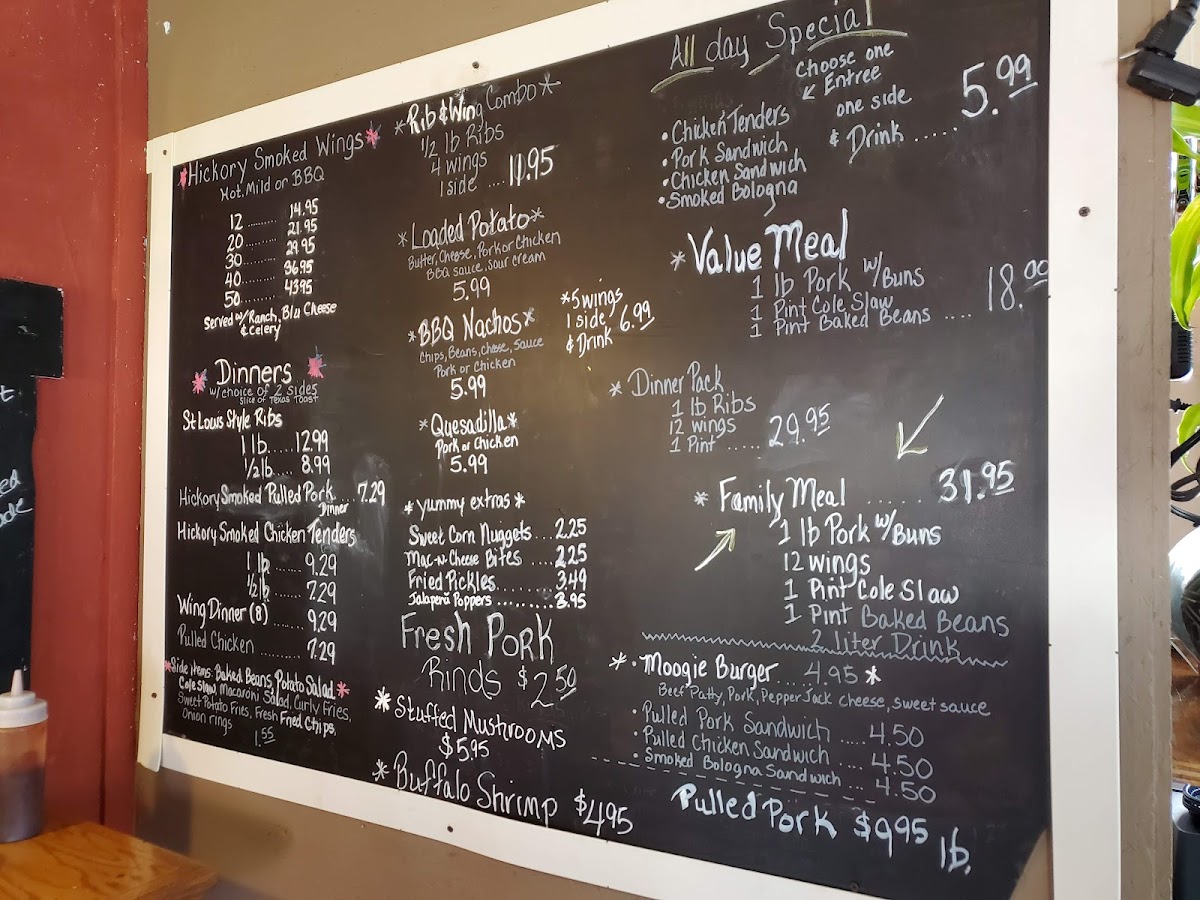 *Hickory Smoked Wings*
Hot, Mild or BBQ
12 ........ 14.95
20 ........ 21.95
30 ........ 29.95
40 ........ 36.95
50 ........ 43.95
Served w/ Ranch, Blu Cheese
& Celery
* Dinners *
w/ choice of 2 sides
Slice of Texas Toast
St Louis Style Ribs
1 lb ..... 12.99
1/2 lb ..... 8.99
Hickory Smoked Pulled Pork .... 7.29
Dinner
Hickory Smoked Chicken Tenders
1 lb ...... 9.29
1/2 lb ..... 7.29
Wing Dinner (8) ....... 9.29
Pulled Chicken ....... 7.29
*Side items: Baked Beans, Potato Salad *
Cole Slaw, Macaroni Salad, Curly Fries,
Sweet Potato Fries, Fresh Fried Chips,
Onion rings
1.55
*Rib & Wing Combo*
1/2 lb Ribs
4 wings
1 side .... 11.95
*Loaded Potato*
Butter, Cheese, Pork or Chicken
BBQ sauce, sour cream
5.99
*BBQ Nachos*
Chips, Beans, Cheese, Sauce
Pork or Chicken
5.99
*5 wings
1 side 6.99
& Drink
*Quesadilla*
Pork or Chicken
5.99
* Yummy extras *
Sweet Corn Nuggets ... 2.25
Mac-n-Cheese Bites .... 2.25
Fried Pickles ............. 3.49
Jalapeño Poppers .......... 3.95
Fresh Pork
Rinds $2.50
* Stuffed Mushrooms
$5.95
* Buffalo Shrimp $4.95
All day Special
Choose one
Entree
one side
& Drink ..... 5.99
• Chicken Tenders
• Pork Sandwich
• Chicken Sandwich
• Smoked Bologna
* Value Meal
1 lb Pork w/ Buns
1 Pint Cole Slaw
1 Pint Baked Beans .... 18.00
* Dinner Pack
1 lb Ribs
12 wings
1 Pint ..... 29.95
* Family Meal ....... 31.95
1 lb Pork w/ Buns
12 wings
1 Pint Cole Slaw
1 Pint Baked Beans
2 liter Drink
* • Moogie Burger ... 4.95 *
Beef Patty, Pork, Pepper Jack cheese, sweet sauce
• Pulled Pork Sandwich .... 4.50
• Pulled Chicken Sandwich .... 4.50
• Smoked Bologna Sandwich .... 4.50
Pulled Pork $9.95 lb.